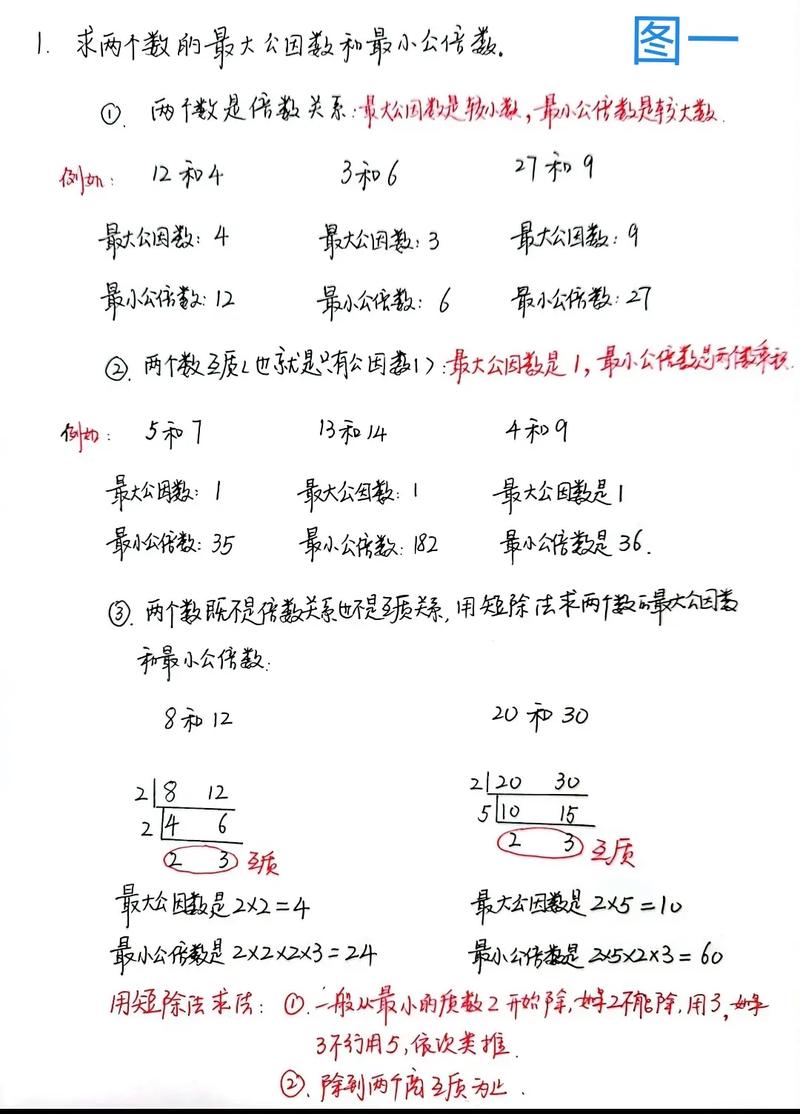 图一
1. 求两个数的最大公因数和最小公倍数.
①. 两个数是倍数关系:最大公因数是较小数,最小公倍数是较大数.
例如: 12和4 3和6 27和9
最大公因数: 4 最大公因数: 3 最大公因数: 9
最小公倍数: 12 最小公倍数: 6 最小公倍数: 27
②. 两个数互质(也就是只有公因数1):最大公因数是1,最小公倍数是两个数乘积.
例如: 5和7 13和14 4和9
最大公因数: 1 最大公因数: 1 最大公因数是1
最小公倍数: 35 最小公倍数: 182 最小公倍数是36.
③. 两个数既不是倍数关系也不是互质关系,用短除法求两个数的最大公因数
和最小公倍数:
8和12 20和30
2 8 12 2 20 30
2 4 6 5 10 15
2 3 互质 2 3 互质
最大公因数是2×2=4 最大公因数是2×5=10
最小公倍数是2×2×2×3=24 最小公倍数是2×5×2×3=60
用短除法求法: ①. 一般从最小的质数2开始除,如果2不能除,用3,如果
3不行用5,依次类推.
②. 除到两个商互质为止.